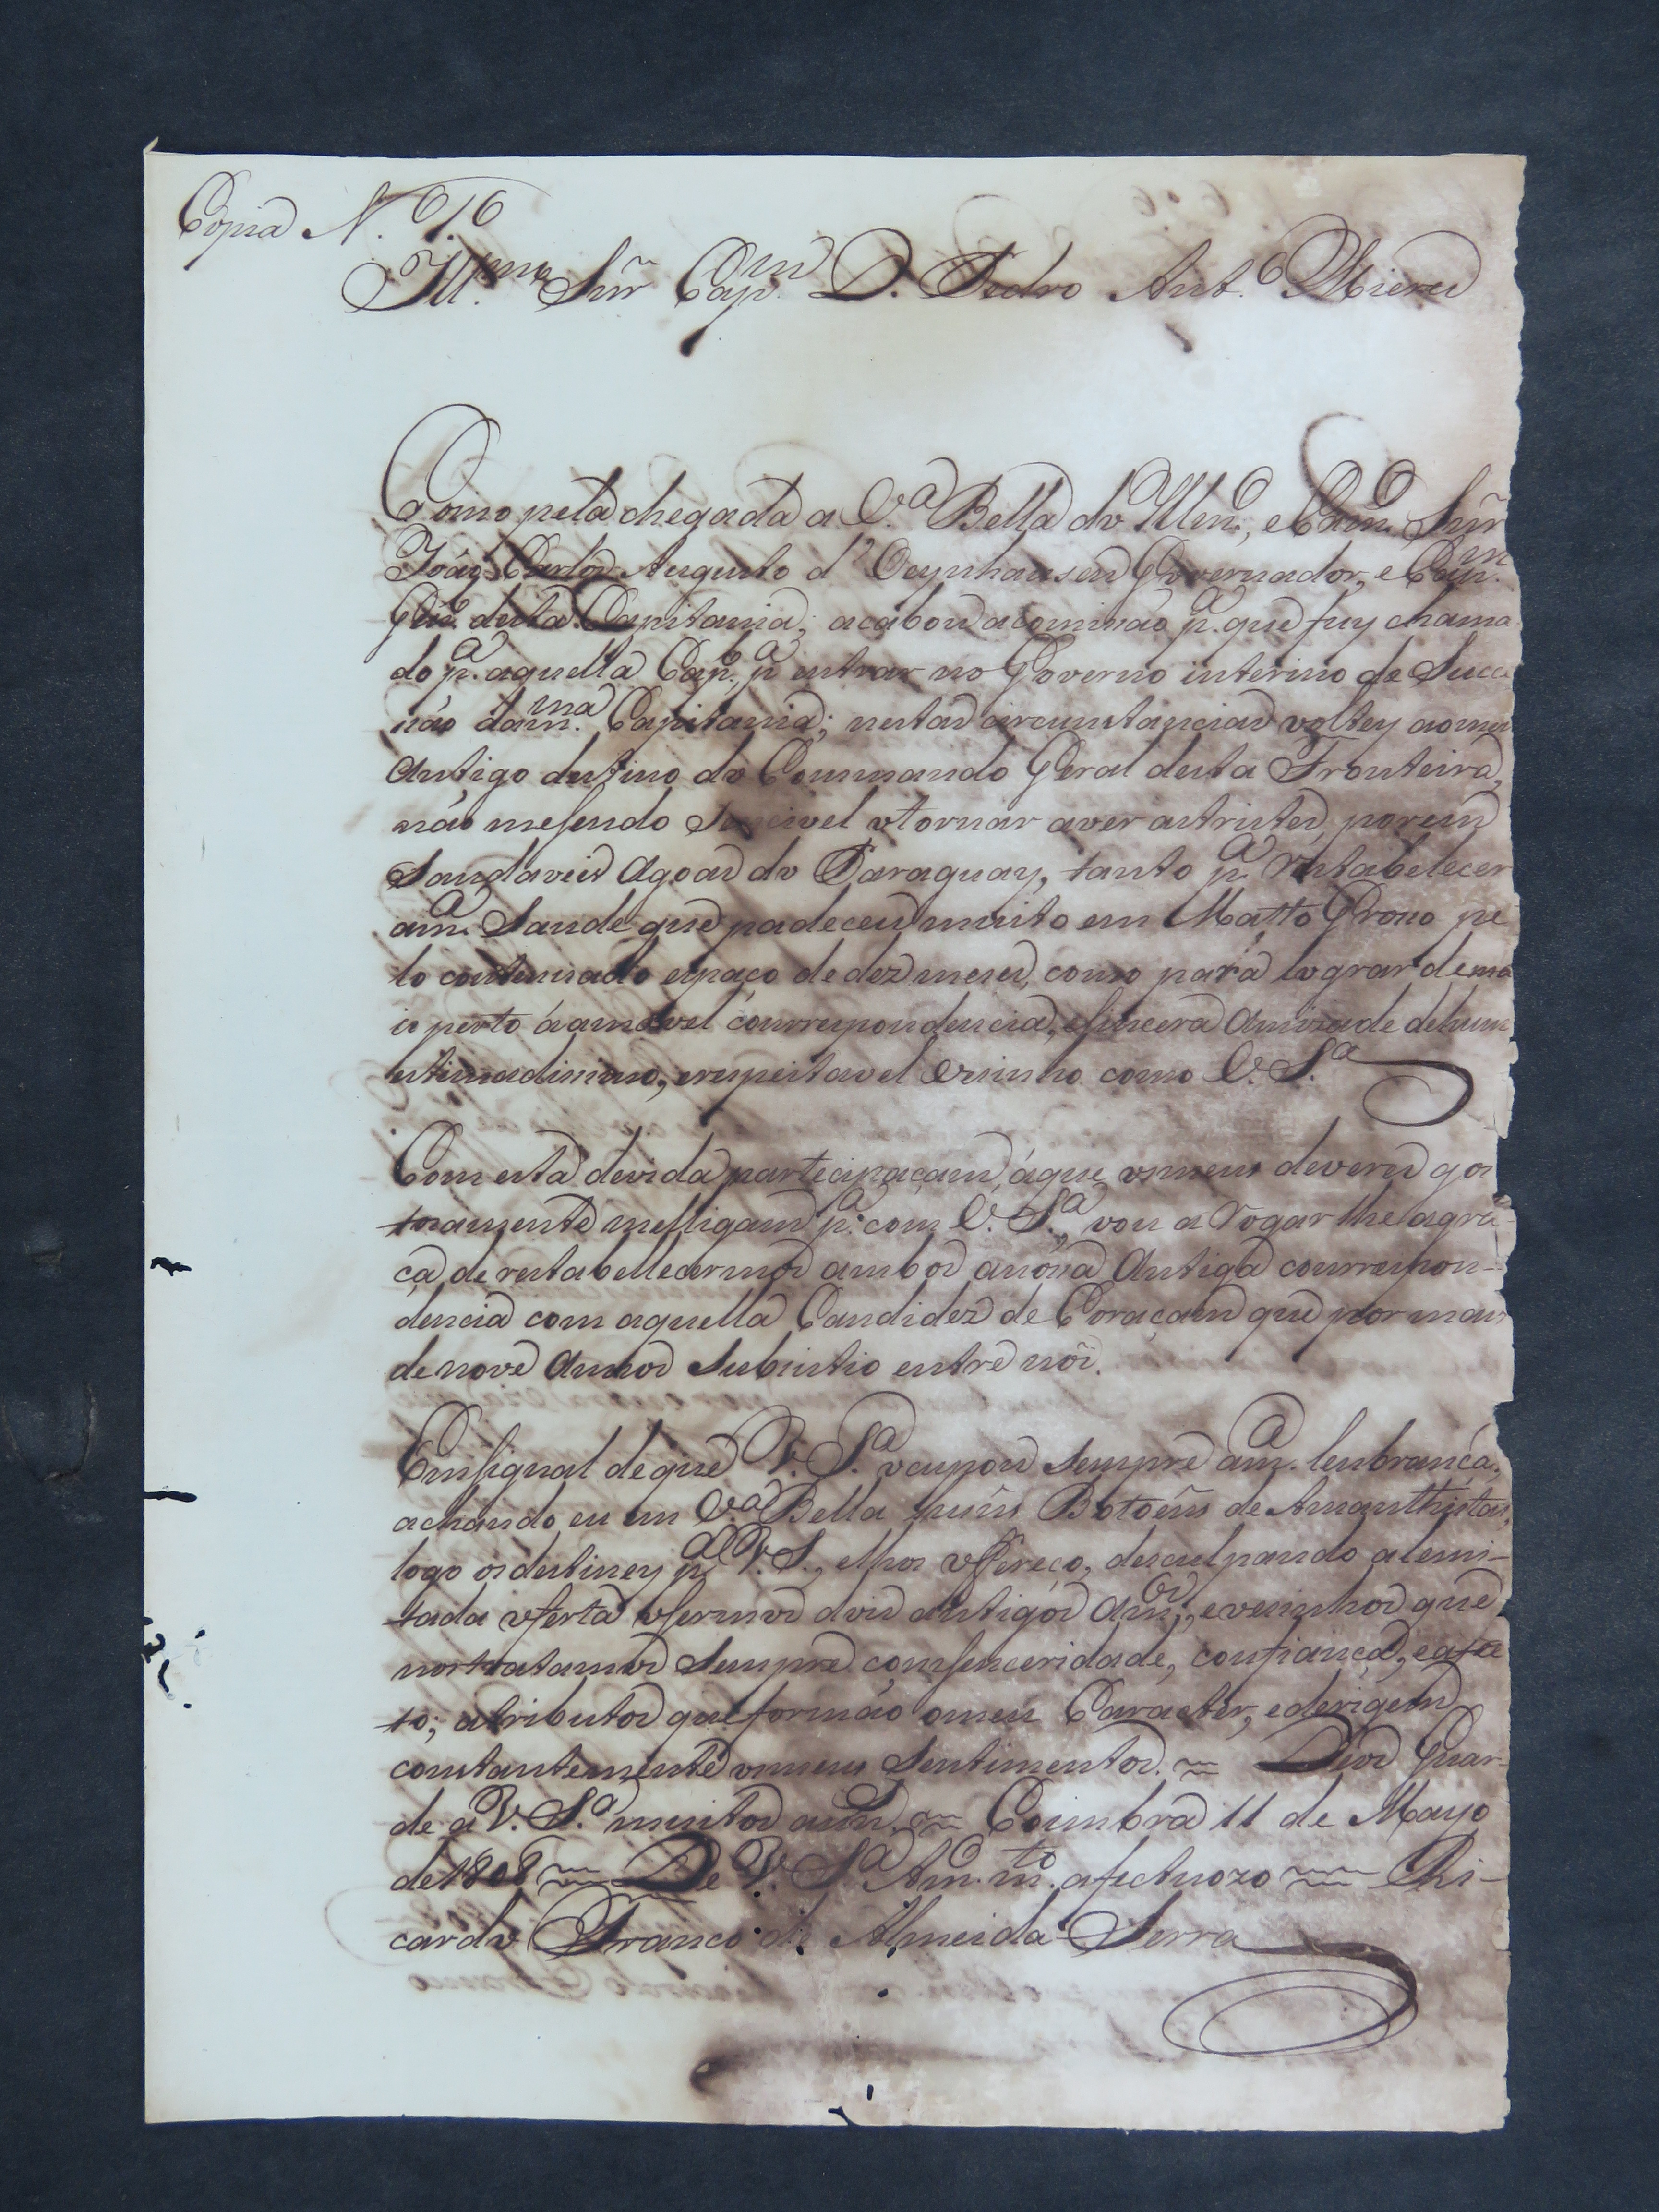 Copia N.º 1.º
Ill.mo Snr̃ Cap.m D. Pedro Ant.º Miers
Como pela chegada a V.ª Bella do Illm.º, e Exm.º Snr̃
João Carlos Augusto d'Oeynhausen Governador, e Cap.m
Gen.l desta Capitania; acabou a comissão p.ª que fuy chama
do p.ª aquella Cap.l, p.ª entrar no Governo interino de Succe
são da m.ma Capitania; nestas circunstancias voltey ao meu
Antigo destino do Commando Geral desta Fronteira,
não me sendo Sencivel o tornar a ver as tristes, porem
Saudaveis Agoas do Paraguay, tanto p.ª restabelecer
a m.ª Saude que padeceu muito em Matto Groso pe
lo continuado espaço de dez meses, como para lograr de ma
is perto á amavel courrespondencia, e sincera Amizade de hum
estimadisimo, e respeitavel Vesinho como V. S.ª
Com esta devida partecipaçam, á que os meus deveres gos
tozamente me ligam p.ª com V. S.ª, vou a rogar lhe a gra-
ça, de restabellecermos ambos a nósa Antiga courrespon-
dencia com aquella Candidez de Coraçam que por mais
de nove Annos Subsistio entre nós.
Em signal de que V. S.ª ocupou sempre a m.ª lenbrança,
achando eu em V.ª Bella huns Botoens de Amanthistas,
logo os destiney p.ª V. S., e lhos offereço, desculpando a lemi-
tada oferta o sermos dois antigos Am.os, e vesinhos que
nos tratamos Sempre com senceridade, confiança, e afec
to; atributos que formáo o meu Caracter, e derigem
constantemente os meus Sentimentos. ~ Deos Guar-
de a V. S.ª muitos ann.s ~ Coimbra 11 de Mayo
de 1808 ~ De V. S.ª Am.º m.to afectuozo ~ Ri-
cardo Franco de Almeida Serra